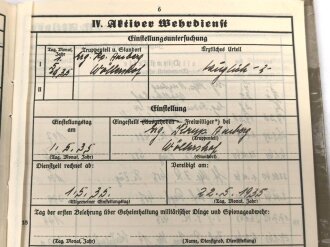 6
IV. Aktiver Wehrdienst
Einstellungsuntersuchung
Tag, Monat, Jahr
Truppenteil u. Standort
Ärztliches Urteil
I
5.35
Wöllershof
tauglich - 3 -
II
Einstellung
Einstellungstag am
Eingestellt (Ausgehoben - Freiwilliger*) bei
1. 5. 35.
(Tag, Monat, Jahr)
(Truppenteil)
Wöllershof
(Standort)
Dienstzeit rechnet ab:
Vereidigt am:
1. 5. 35.
(Allgemeiner Einstellungstag)
22. 5. 1935
(Tag, Monat, Jahr)
Tag der ersten Belehrung über Geheimhaltung militärischer Dinge und Spionageabwehr:
(Tag, Monat, Jahr)
(Name, Dienstgrad, Dienststellung)